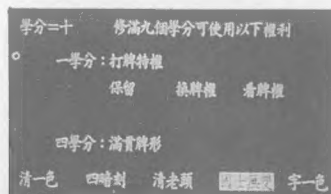 學分=十 修滿九個學分可使用以下權利
一學分：打牌特權
保留 換牌權 看牌權
四學分：滿貫牌形
清一色 四暗刻 清老頭 字一色